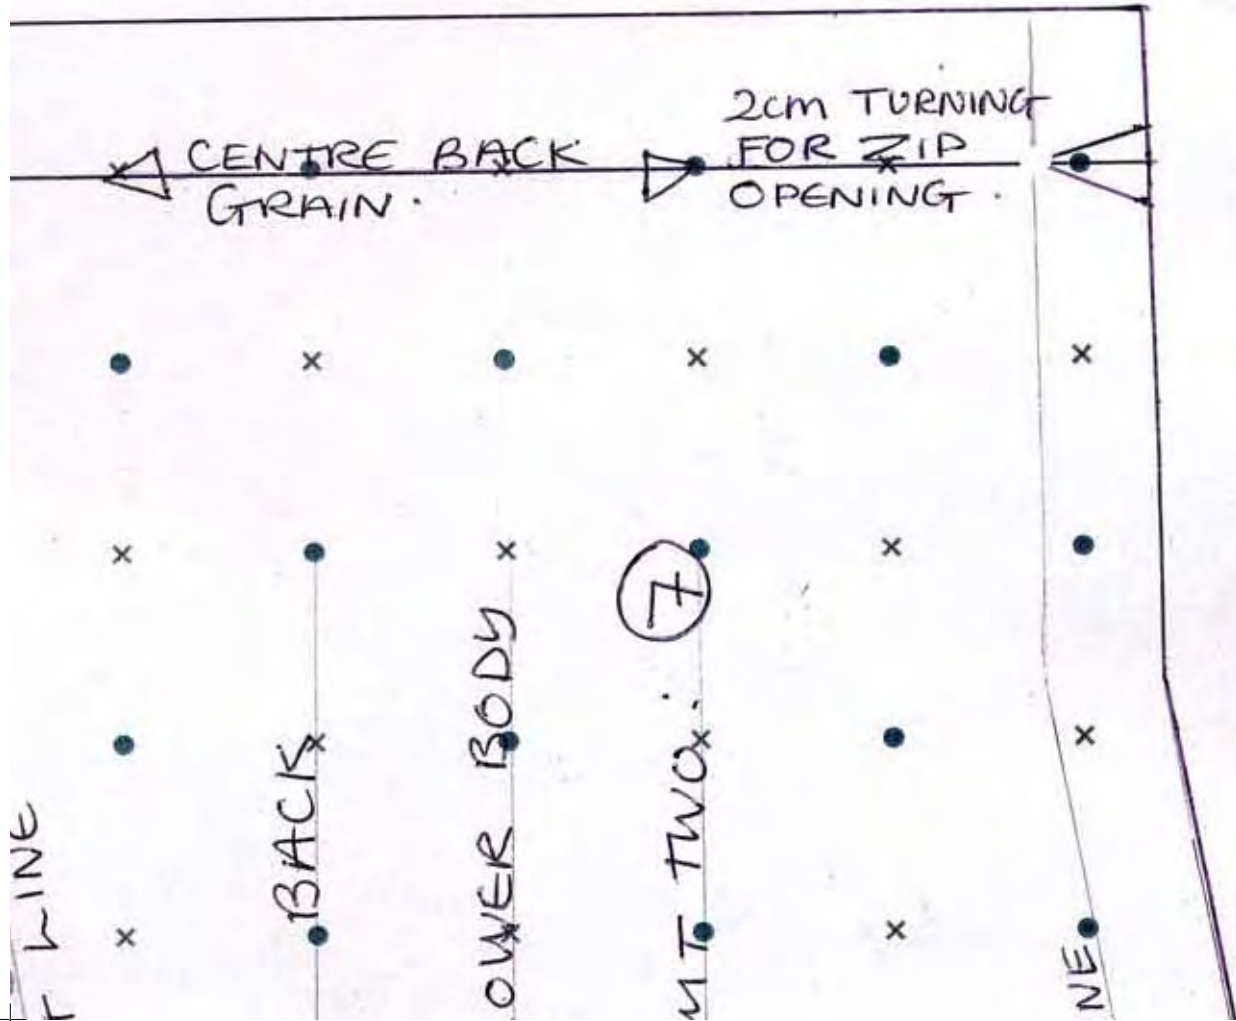 CENTRE BACK
GRAIN.
2cm TURNING
FOR ZIP
OPENING.
LINE
BACK
OWER BODY
7
TWO.
NE